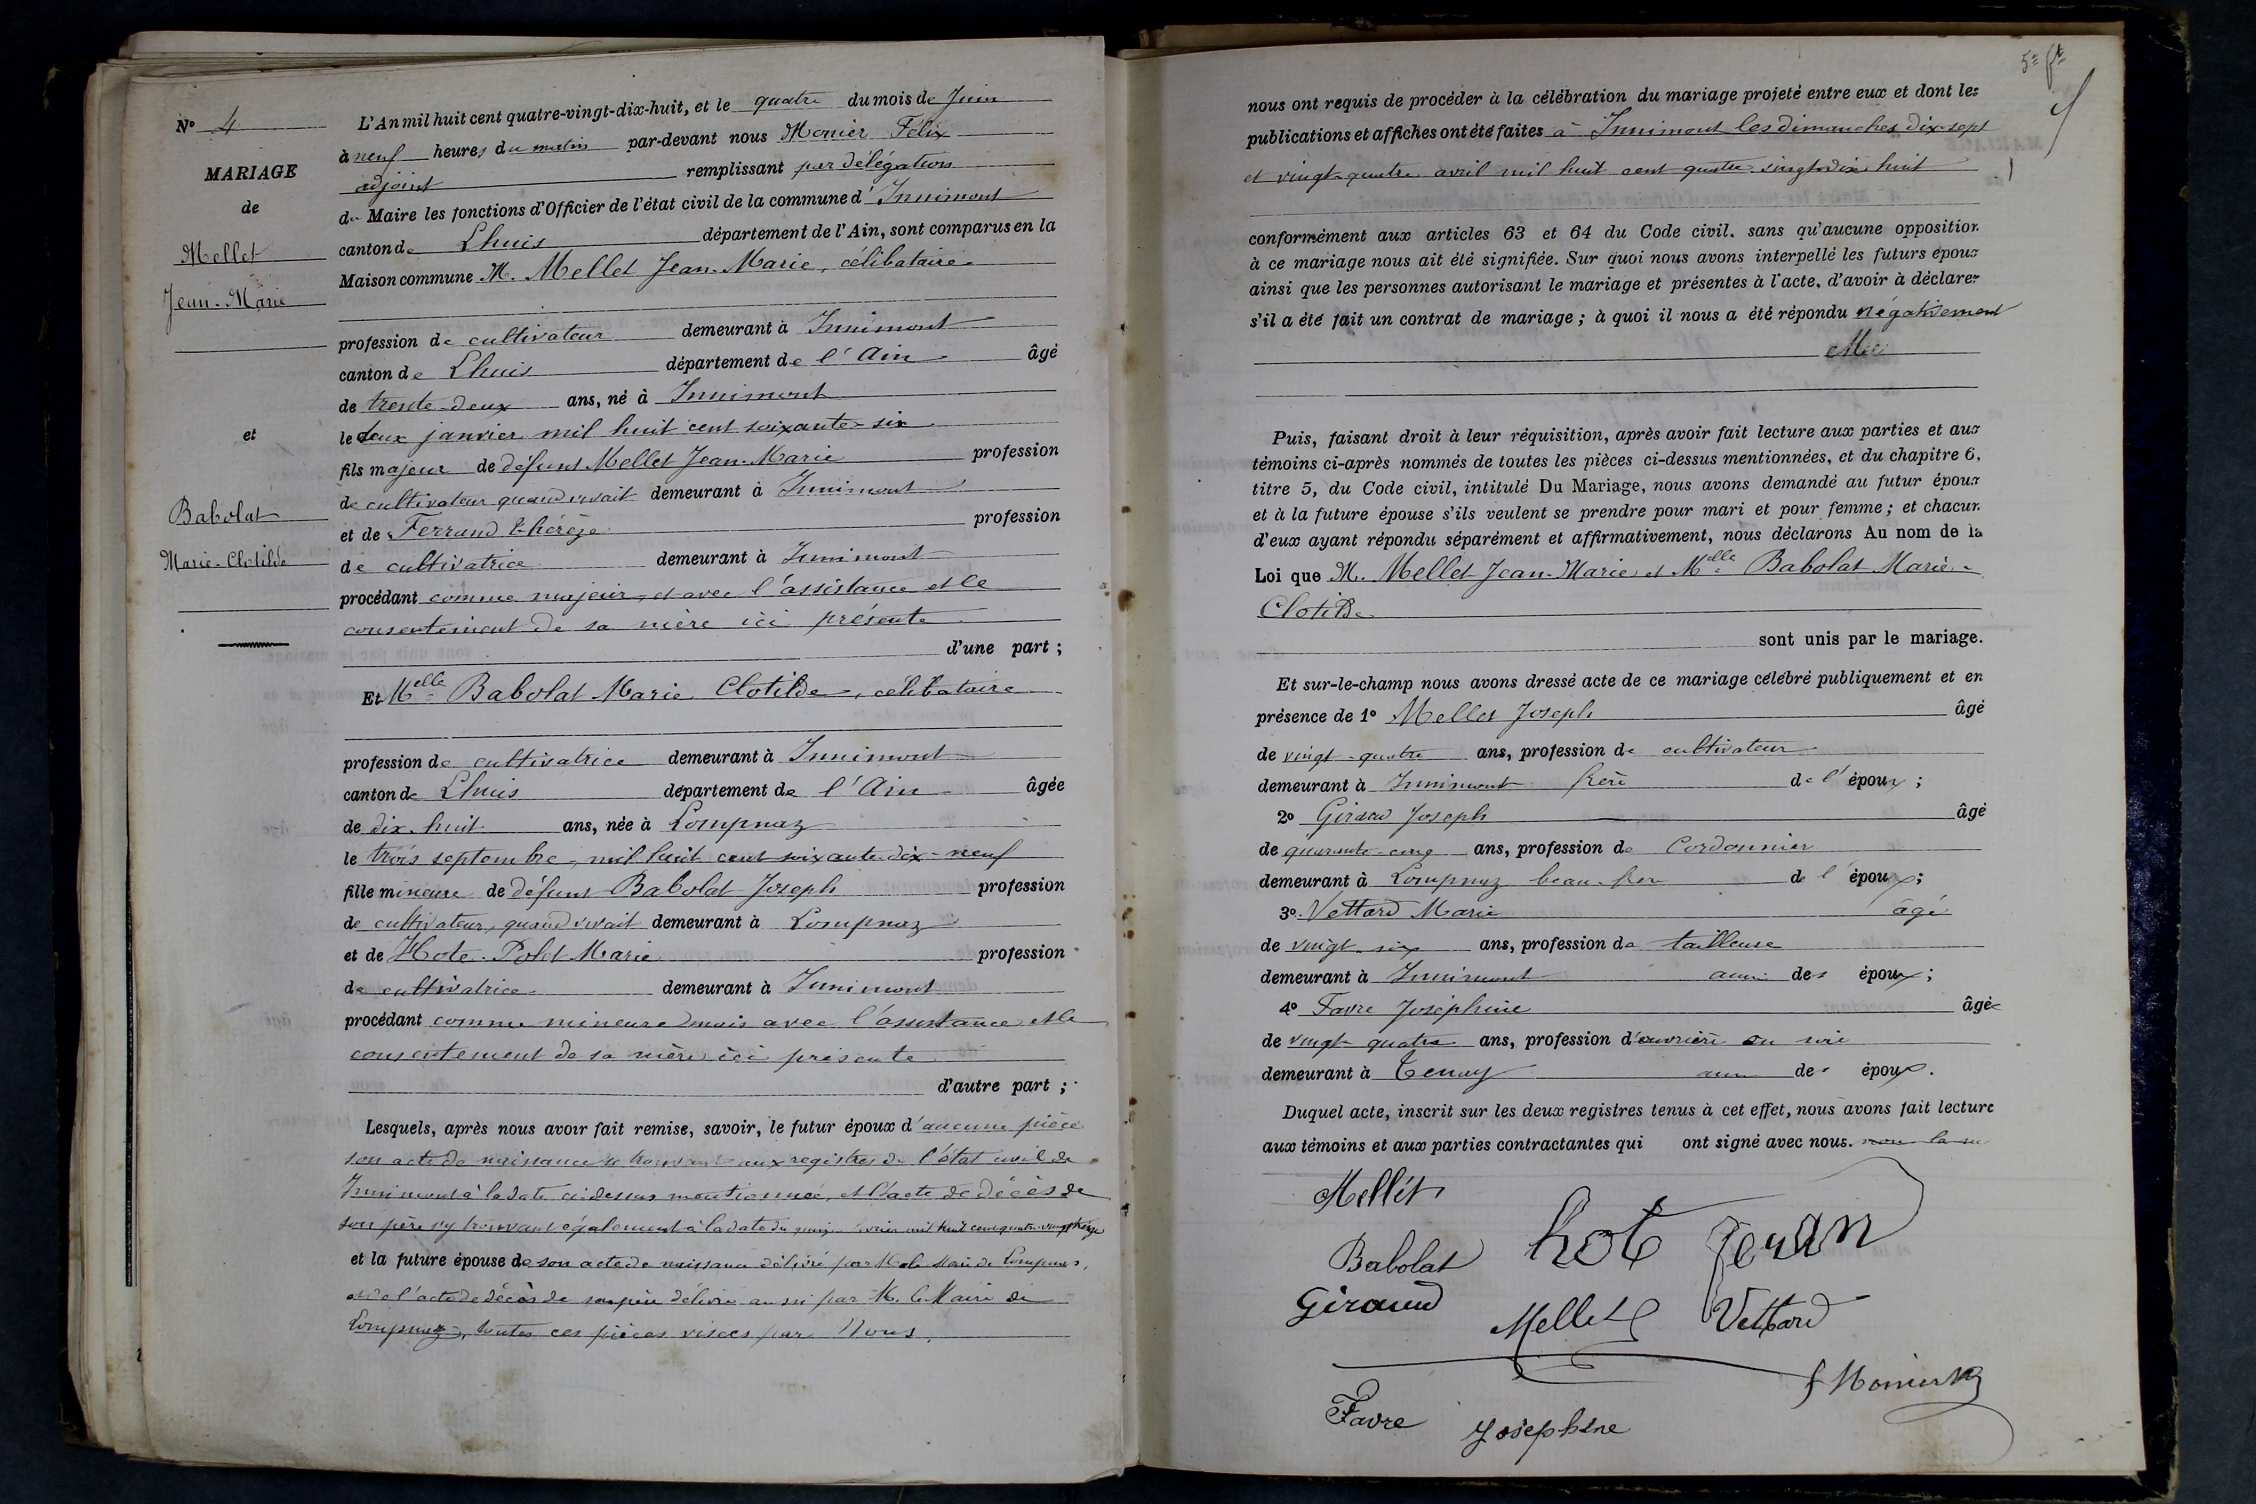 N° 4
MARIAGE
de
Mellet
Jean-Marie
et
Babolat
Marie-Clotilde
L'An mil huit cent quatre-vingt-dix-huit, et le quatre du mois de Juin
à neuf heures du matin par-devant nous Monier Félix
adjoint remplissant par délégation
du Maire les fonctions d'Officier de l'état civil de la commune d'Innimont
canton de Lhuis département de l'Ain, sont comparus en la
Maison commune M. Mellet Jean-Marie, célibataire
profession de cultivateur demeurant à Innimont
canton de Lhuis département de l'Ain âgé
de trente-deux ans, né à Innimont
le deux janvier mil huit cent soixante-six
fils majeur de défunt Mellet Jean-Marie profession
de cultivateur quand vivait demeurant à Innimont
et de Ferrand Thérèze profession
de cultivatrice demeurant à Innimont
procédant comme majeur, et avec l'assistance et le
consentement de sa mère ici présente
d'une part ;
Et Melle Babolat Marie Clotilde, célibataire
profession de cultivatrice demeurant à Innimont
canton de Lhuis département de l'Ain âgée
de dix-huit ans, née à Lompnaz
le trois septembre, mil huit cent soixante-dix-neuf
fille mineure de défunt Babolat Joseph profession
de cultivateur, quand vivait demeurant à Lompnaz
et de Hote-Polet Marie profession
de cultivatrice demeurant à Innimont
procédant comme mineure mais avec l'assistance et le
consentement de sa mère ici présente
d'autre part ;
Lesquels, après nous avoir fait remise, savoir, le futur époux d'aucune pièce
son acte de naissance se trouvant aux registres de l'état civil de
Innimont à la date ci-dessus mentionnée, et l'acte de décès de
son père s'y trouvant également à la date du mil huit cent quatre-vingt
et la future épouse de son acte de naissance délivré par M. le Maire de Lompnaz,
et de l'acte de décès de son père délivré aussi par M. le Maire de
Lompnaz, toutes ces pièces visées par Nous.
nous ont requis de procéder à la célébration du mariage projeté entre eux et dont les
publications et affiches ont été faites à Innimont les dimanches dix-sept
et vingt-quatre avril mil huit cent quatre-vingt-dix-huit
conformément aux articles 63 et 64 du Code civil, sans qu'aucune opposition
à ce mariage nous ait été signifiée. Sur quoi nous avons interpellé les futurs époux
ainsi que les personnes autorisant le mariage et présentes à l'acte, d'avoir à déclarer
s'il a été fait un contrat de mariage ; à quoi il nous a été répondu négativement
Puis, faisant droit à leur réquisition, après avoir fait lecture aux parties et aux
témoins ci-après nommés de toutes les pièces ci-dessus mentionnées, et du chapitre 6,
titre 5, du Code civil, intitulé Du Mariage, nous avons demandé au futur époux
et à la future épouse s'ils veulent se prendre pour mari et pour femme ; et chacun
d'eux ayant répondu séparément et affirmativement, nous déclarons Au nom de la
Loi que M. Mellet Jean-Marie et Melle Babolat Marie-
Clotilde
sont unis par le mariage.
Et sur-le-champ nous avons dressé acte de ce mariage célébré publiquement et en
présence de 1° Mellet Joseph âgé
de vingt-quatre ans, profession de cultivateur
demeurant à Innimont frère de l'époux ;
2° Giraud Joseph âgé
de quarante-cinq ans, profession de Cordonnier
demeurant à Lompnaz beau-frère de l'époux ;
3° Vettard Marie âgé
de vingt-six ans, profession de tailleuse
demeurant à Innimont amie des époux ;
4° Favre Joséphine âgée
de vingt-quatre ans, profession d'ouvrière en soie
demeurant à Tenay amie des époux.
Duquel acte, inscrit sur les deux registres tenus à cet effet, nous avons fait lecture
aux témoins et aux parties contractantes qui ont signé avec nous.
Mellet
Babolat hot feran
Giraud
Mellet Vettard
f Monier
Favre Josephine